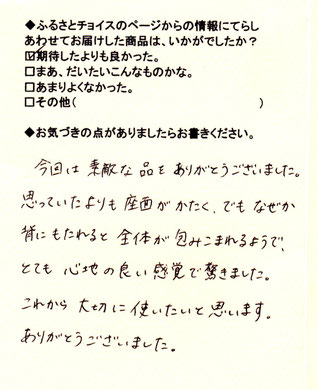 ◆ふるさとチョイスのページからの情報にてらし
あわせてお届けした商品は、いかがでしたか？
☑期待したよりも良かった。
□まあ、だいたいこんなものかな。
□あまりよくなかった。
□その他（　　　　　　　　　　　　　　）
◆お気づきの点がありましたらお書きください。
今回は素敵な品をありがとうございました。
思っていたよりも座面がかたく、でもなぜか
背にもたれると全体が包みこまれるようで、
とても心地の良い感覚で驚きました。
これから大切に使いたいと思います。
ありがとうございました。